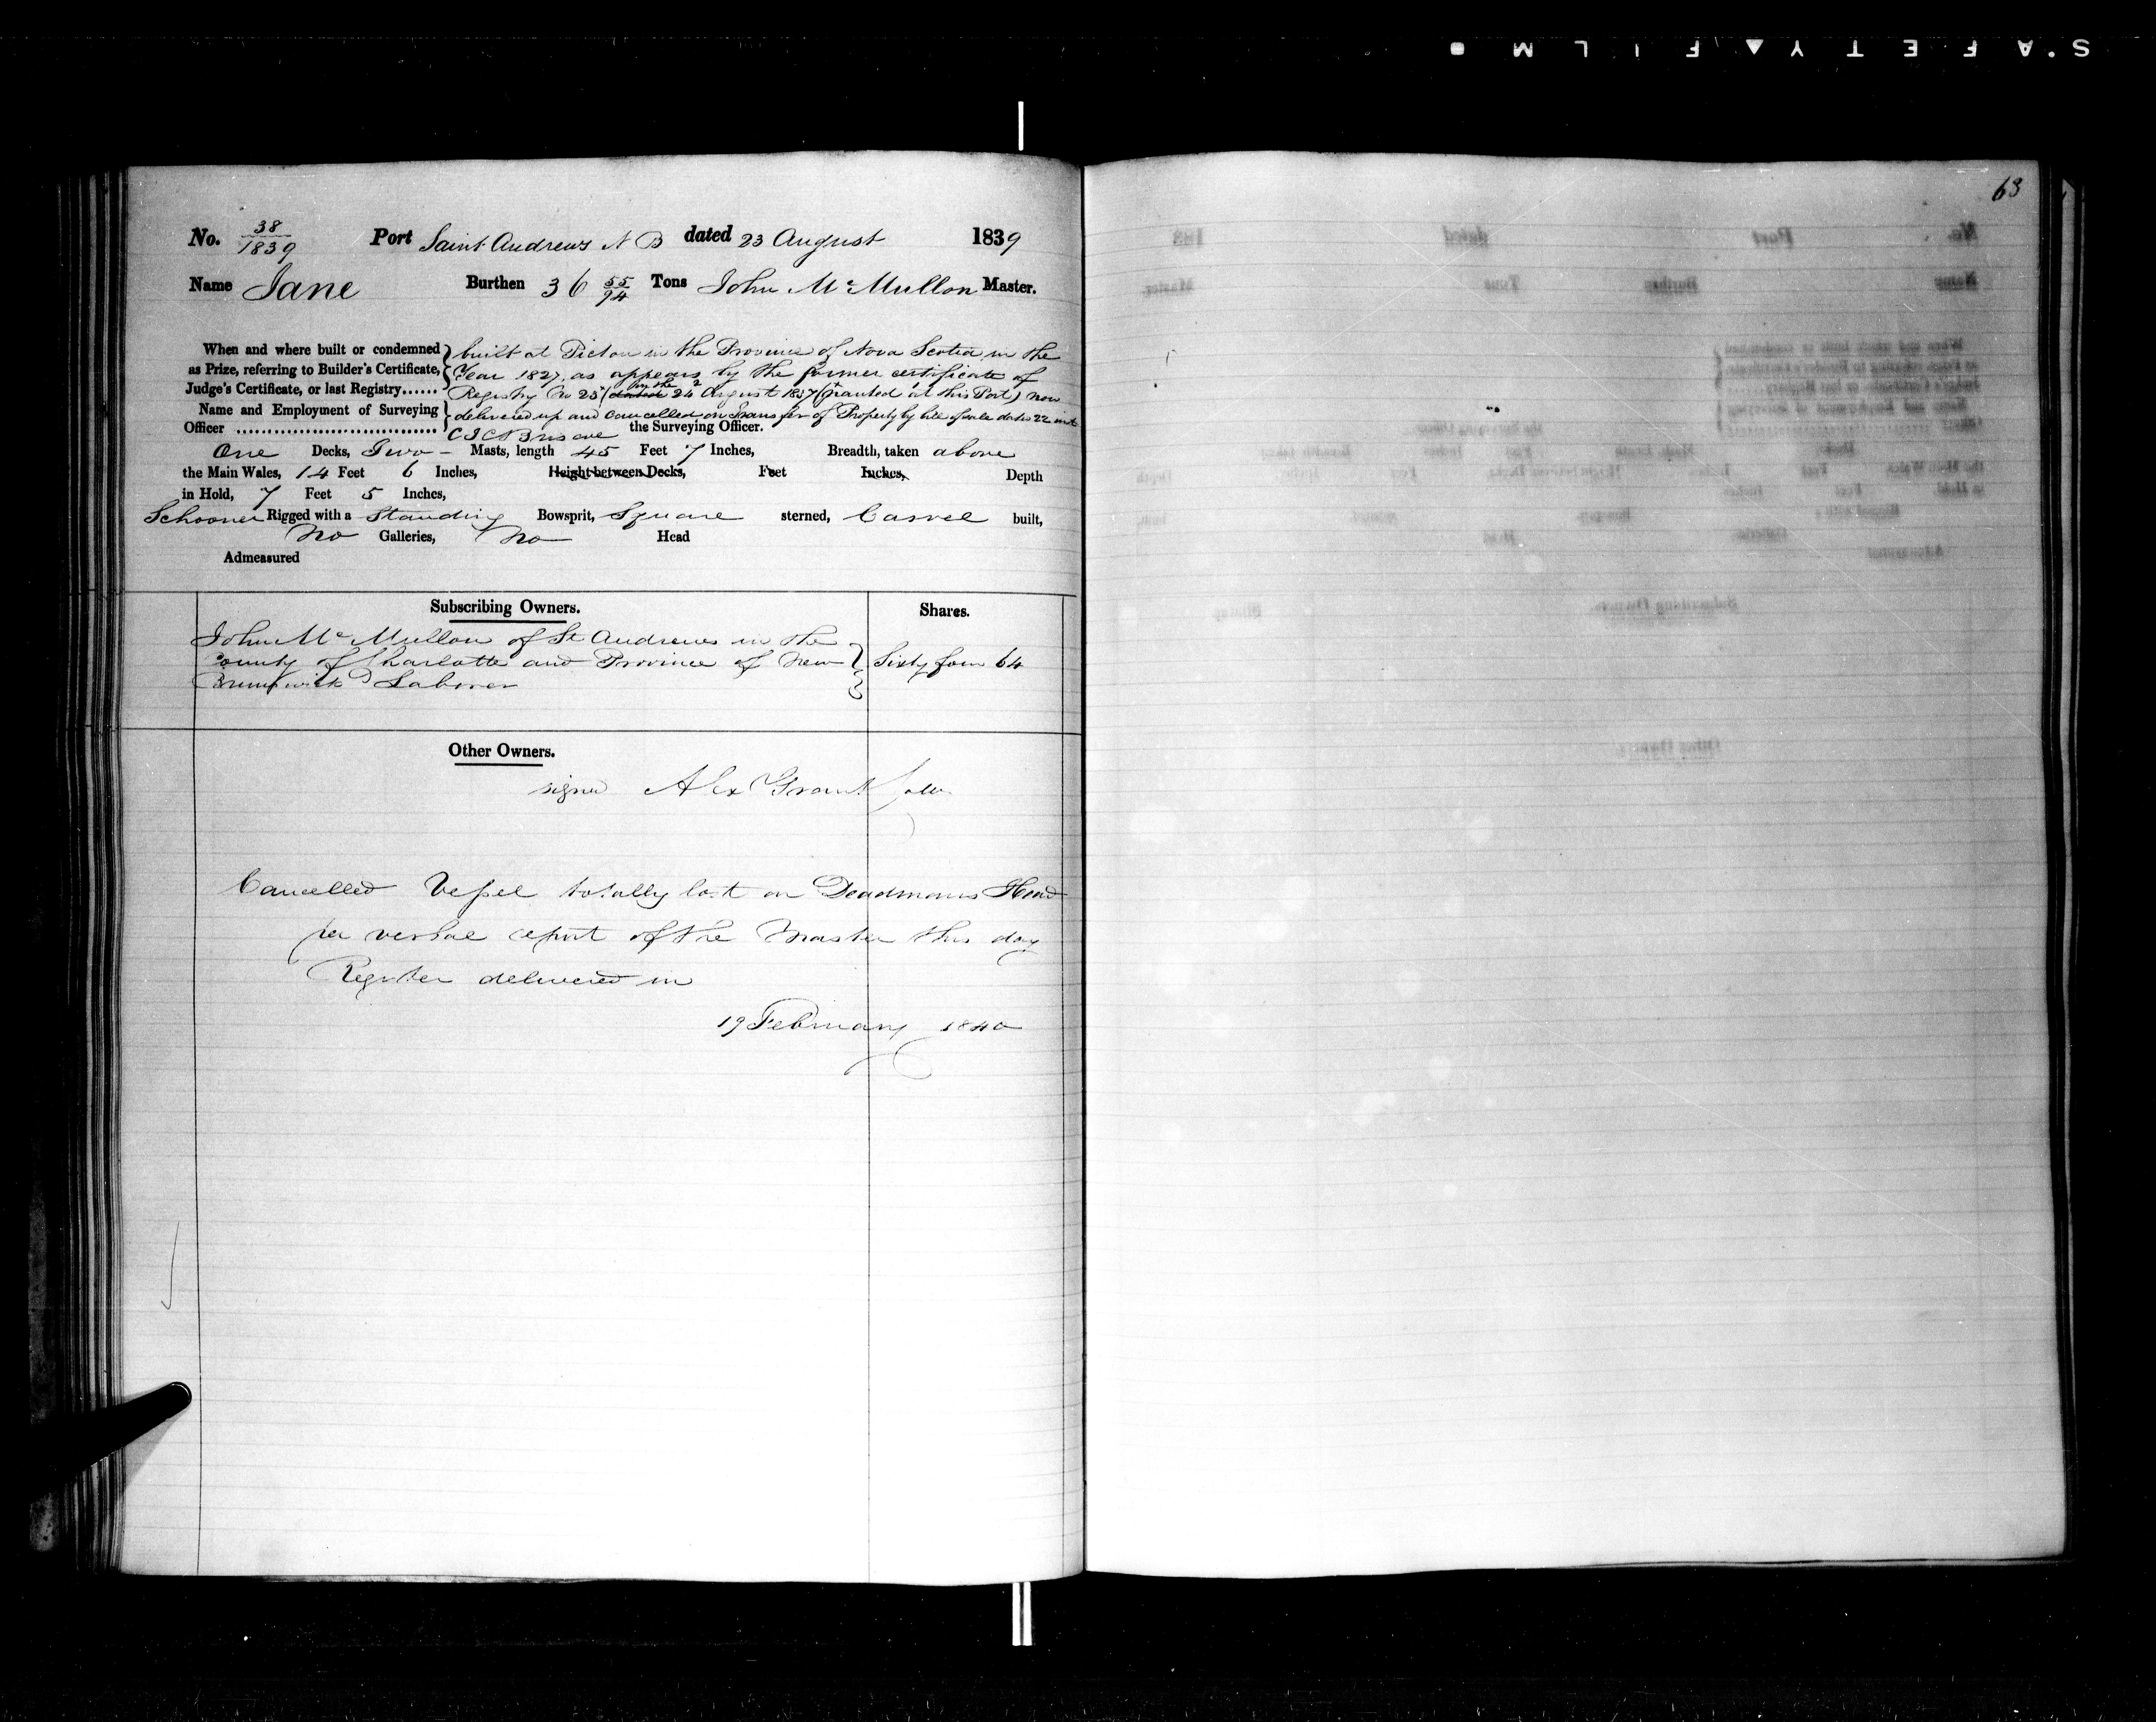 SAFETY FILM
63
No. 38/1839 Port Saint Andrews N B dated 23 August 1839
Name Jane Burthen 36 55/94 Tons John McMullon Master.
When and where built or condemned as Prize, referring to Builder's Certificate, Judge's Certificate, or last Registry......
built at Pictou in the Province of Nova Scotia in the
Year 1827, as appears by the former certificate of
Registry No 23 (dated 24 August 1837 granted at this Port) now
Name and Employment of Surveying Officer
delivered up and Cancelled on transfer of Property by bill of sale dated 22 inst
the Surveying Officer.
One Decks, Two Masts, length 45 Feet 7 Inches, Breadth, taken above
the Main Wales, 14 Feet 6 Inches, Height between Decks, Feet Inches, Depth
in Hold, 7 Feet 5 Inches,
Schooner Rigged with a Standing Bowsprit, Square sterned, Carvel built,
No Galleries, No Head
Admeasured
Subscribing Owners. Shares.
John McMullon of St Andrews in the
County of Charlotte and Province of New Sixty four 64
Brunswick Laborer
Other Owners.
signed Alex Grant
Cancelled Vessel totally lost on Deadmans Head
per verbal report of the Master this day
Register delivered in
19 February 1840